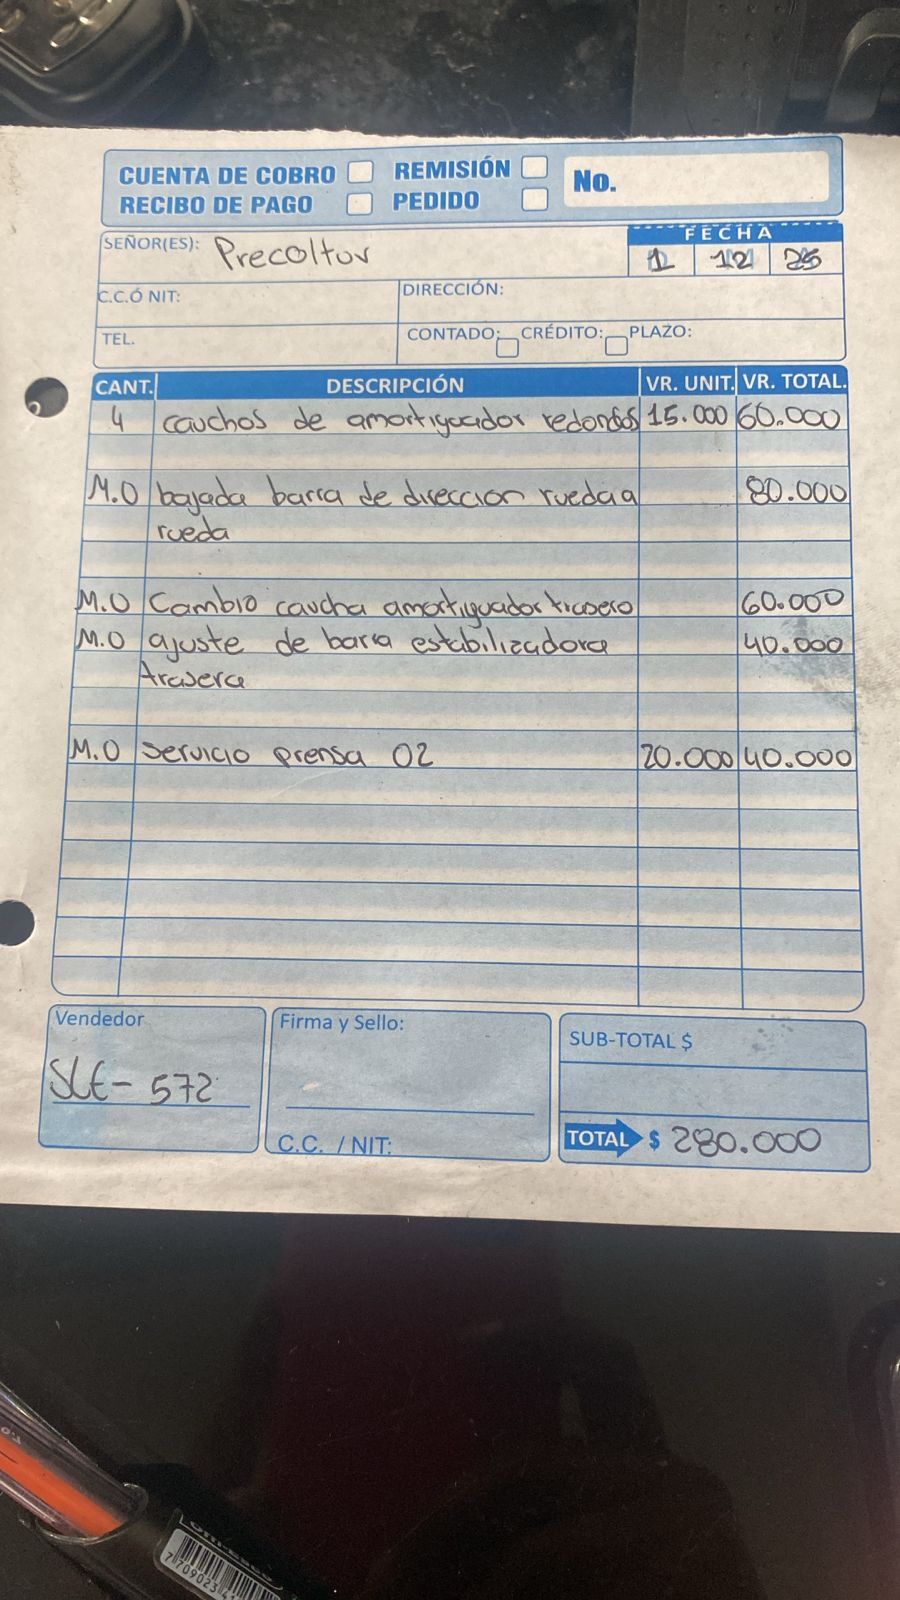 CUENTA DE COBRO REMISIÓN No.
RECIBO DE PAGO PEDIDO
SEÑOR(ES): Precoltur FECHA
1 12 25
C.C.Ó NIT: DIRECCIÓN:
TEL. CONTADO: CRÉDITO: PLAZO:
CANT. DESCRIPCIÓN VR. UNIT. VR. TOTAL.
4 cauchos de amortiguador redondos 15.000 60.000
M.O bajada barra de direccion rueda a 80.000
rueda
M.O Cambio caucha amortiguador trasero 60.000
M.O ajuste de barra estabilizadora 40.000
trasera
M.O Servicio prensa 02 20.000 40.000
Vendedor Firma y Sello: SUB-TOTAL $
SLE- 572
C.C. / NIT: TOTAL $ 280.000